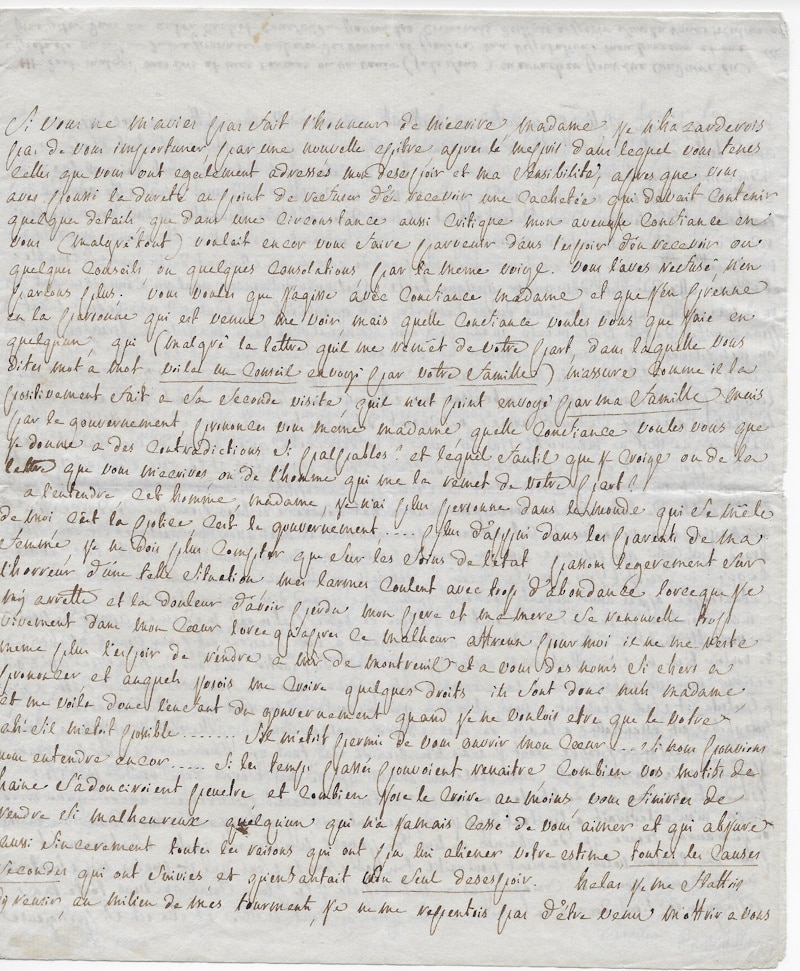 Si vous ne m'avies pas fait l'honneur de m'ecrire madame je n'hazarderois
pas de vous importuner par une nouvelle epitre apres le mepris dans lequel vous tenes
celles que vous ont egalement adressés mon desespoir et ma sensibilité, apres que vous
aves poussé la dureté au point de refuser d'en recevoir une cachetée qui devait contenir
quelques details que dans une circonstance aussi critique mon aveugle confiance en
vous (malgré tout) voulait encor vous faire parvenir dans l'espoir d'en recevoir ou
quelques conseils ou quelques consolations par la meme voiye. vous l'aves refusé n'en
parlons plus. vous voules que j'agisse avec confiance madame et que j'en prenne
en la personne qui est venue me voir mais quelle confiance voules vous que j'aie en
quelqu'un qui (malgré la lettre qu'il me remet de votre part, dans laquelle vous
dites mot a mot voila un conseil envoyé par votre famille) m'assure comme il la
positivement fait a sa seconde visite, quil n'est point envoyé par ma famille mais
par le gouvernement, prononces vous meme madame, quelle confiance voules vous que
je donne a des contradictions si palpables? et lequel faut il que je croiye ou de la
lettre que vous m'ecrives ou de l'homme qui me la remet de votre part?
a l'entendre, cet homme, madame, je n'ai plus personne dans le monde qui se mêle
de moi c'est la police c'est le gouvernement.... plus d'appui dans les parents de ma
femme, je ne dois plus compter que sur les soins de l'etat passons legerement sur
l'horreur d'une telle situation mes larmes coulent avec trop d'abondance lorsque je
m'y arrette et la douleur d'avoir perdu mon pere et ma mere se renouvelle trop
vivement dans mon cœur lorsqu'apres ce malheur affreux pour moi il ne me reste
meme plus l'espoir de rendre a mr de montreuil et a vous des noms si chers a
prononcer et auquels j'osois me croire quelques droits ils sont donc nuls madame
et me voila donc l'enfant du gouvernement quand je ne voulois etre que le votre
ah! s'il m'etoit possible ....... s'il m'etoit permis de vous ouvrir mon cœur... si nous pouvions
nous entendre encor..... si les temps passés pouvoient renaitre combien vos motifs de
haine s'adouciroient peutetre et combien j'ose le croire au moins vous finiries de
rendre si malheureux quelqu'un qui n'a jamais cessé de vous aimer et qui abjure
aussi sincerement toutes les raisons qui ont pu lui aliener votre estime, toutes les causes
secondes qui ont suivies et qu'enfantait mon seul desespoir. helas je me flattois
au milieu de mes tourments, je ne me repentois pas d'être venu m'offrir a vous